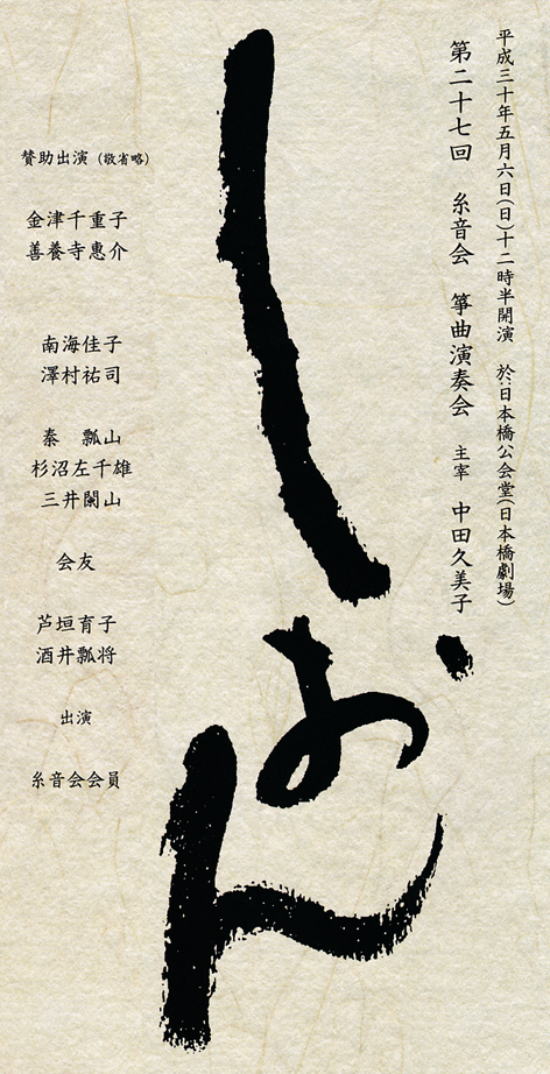 平成三十年五月六日(日)十二時半開演 於:日本橋公会堂(日本橋劇場)
第二十七回 糸音会 箏曲演奏会 主宰 中田久美子
しおん
賛助出演(敬省略)
金津千重子
善養寺惠介
南海佳子
澤村祐司
秦 瓢山
杉沼左千雄
三井闌山
会友
芦垣育子
酒井瓢将
出演
糸音会会員